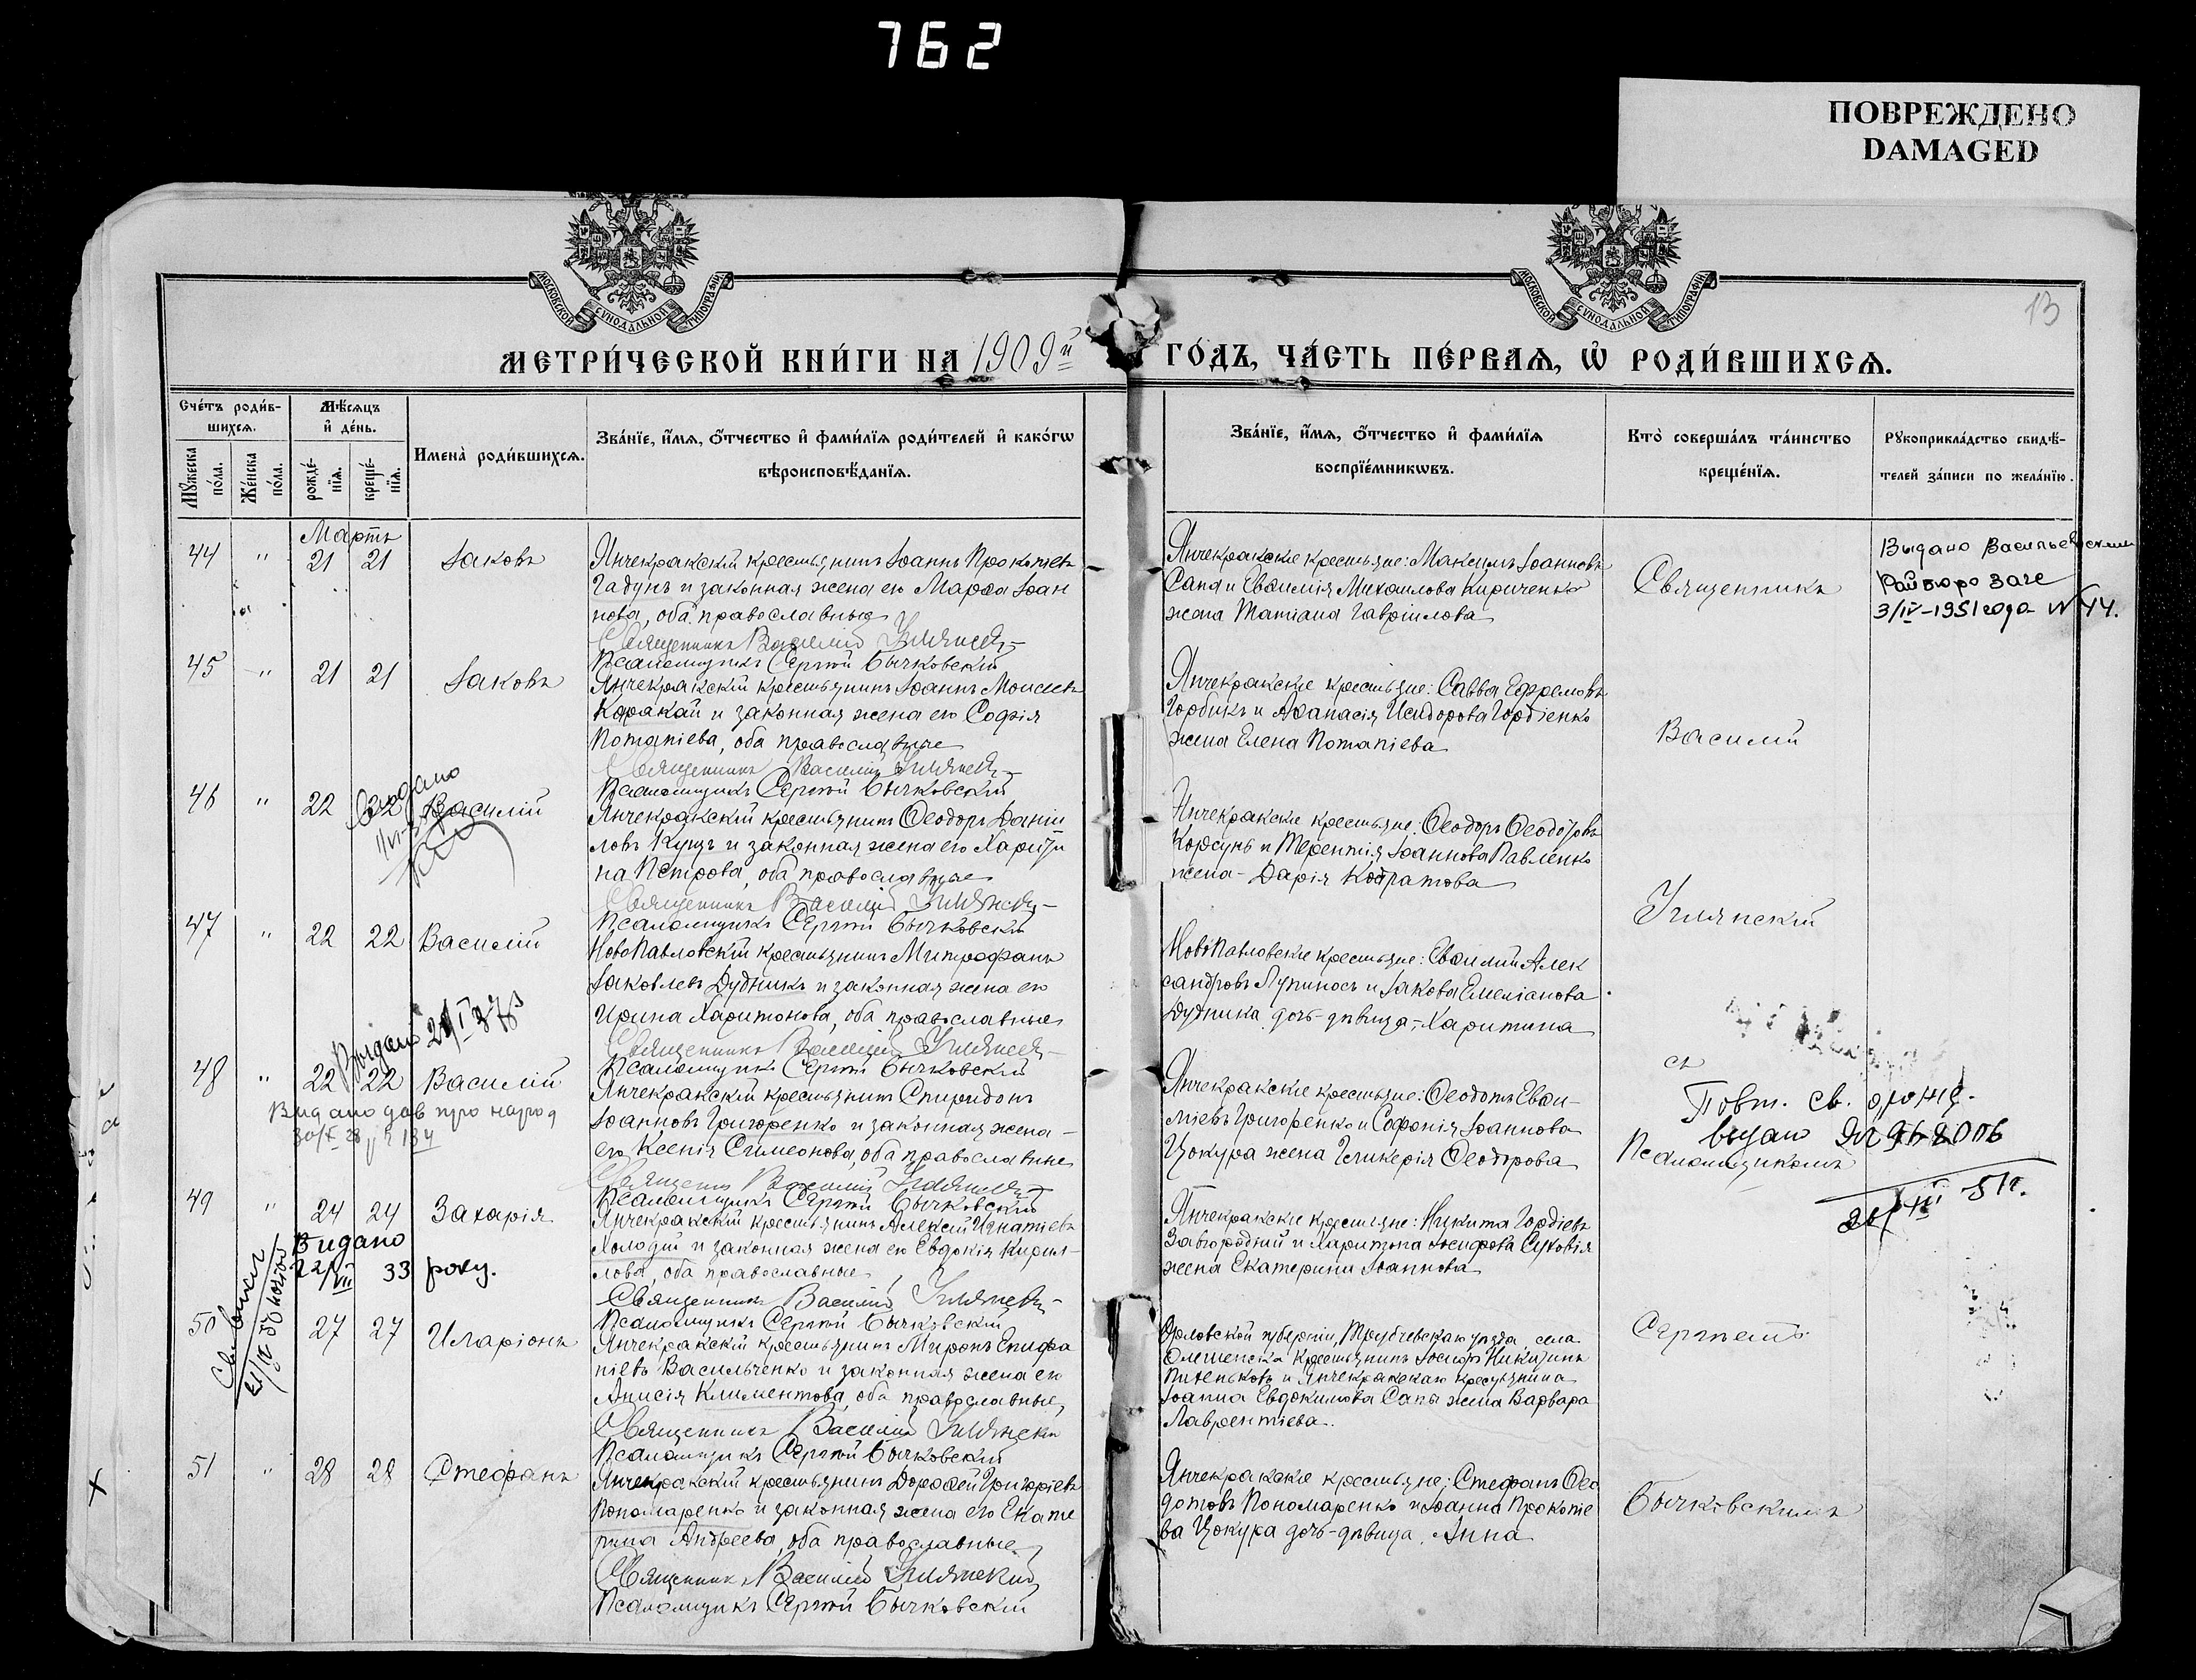 762
ПОВРЕЖДЕНО
DAMAGED
МОСКОВСКОЙ СѴНОДАЛЬНОЙ ТИПОГРАФІИ
МОСКОВСКОЙ СѴНОДАЛЬНОЙ ТИПОГРАФІИ
13
МЕТРИ́ЧЕСКОЙ КНИ́ГИ НА 1909й ГО́ДЪ, ЧА́СТЬ ПЕ́РВАѦ, Ѽ РОДИ́ВШИХСѦ.
Сче́тъ роди́в-
шихсѧ.
Мꙋ́жеска по́ла.
Же́нска по́ла.
Мѣ́сѧцъ
и҆ де́нь.
рожде́-
нїѧ.
креще́-
нїѧ.
Имена̀ роди́вшихсѧ.
Зва́нїе, и҆́мѧ, ѻ҆́тчество и҆ фами́лїѧ роди́телей и҆ како́гѡ
вѣроисповѣ́данїѧ.
Зва́нїе, и҆́мѧ, ѻ҆́тчество и҆ фами́лїѧ
воспрїе́мникѡвъ.
Кто̀ соверша́лъ та́инство
креще́нїѧ.
Рꙋкоприкла́дство свидѣ́-
телей за́писи по жела́нїю.
Мартъ
44 " 21 21 Іаковъ
Янчекракскій крестьянинъ Іоаннъ Прокопіевъ
Гадунъ и законная жена его Марѳа Іоан
нова, оба православные
Священникъ Василій
Псаломщикъ Сергій Бычковскій
Янчекракскіе крестьяне: Максимъ Іоанновъ
Сапа и Евѳимія Михаилова Кириченко
жена Татіана Гавріилова
Священникъ
Выдано Васильевским
Райбюро Загс
3/IV-1951 года N 44.
45 " 21 21 Іаковъ
Янчекракскій крестьянинъ Іоаннъ Моисеевъ
Коракай и законная жена его Софія
Потапіева, оба православные
Священникъ Василій
Псаломщикъ Сергій Бычковскій
Янчекракскіе крестьяне: Савва Ефремовъ
Горбикъ и Аѳанасія Исидорова Гордіенко
жена Елена Потапіева
Василій
46 " 22 22 Василій
Выдано
Янчекракскій крестьянинъ Ѳеодоръ Даніи
ловъ Куцъ и законная жена его Харити
на Петрова, оба православные
Священникъ Василій
Псаломщикъ Сергій Бычковскій
Янчекракскіе крестьяне: Ѳеодоръ Ѳеодотовъ
Корсунь и Терентія Іоаннова Павленко
жена - Дарія Кодратова
47 " 22 22 Василій
НовоПавловскій крестьянинъ Митрофанъ
Іаковлевъ Дудникъ и законная жена его
Ирина Харитонова, оба православные
Священникъ Василій
Псаломщикъ Сергій Бычковскій
НовоПавловскіе крестьяне: Евѳимій Алек
сандровъ Лупиносъ и Іакова Емеліанова
Дудника дочь-дѣвица, Харитина
48 " 22 22 Василій
Янчекракскій крестьянинъ Спиридонъ
Іоанновъ Григоренко и законная жена
его Ксенія Симеонова, оба православные
Псаломщикъ Сергій Бычковскій
Янчекракскіе крестьяне: Ѳеодотъ Евѳи-
міевъ Григоренко и Софонія Іоаннова
Цокура жена Гликерія Ѳеодорова
съ
Повт. св. о рожд.
Псаломщикомъ
49 " 24 24 Захарія
Видано
22/VII 33 року.
Янчекракскій крестьянинъ Алексій Игнатіевъ
Холодій и законная жена его Евдокія Кирил-
лова, оба православные
Священникъ Василій
Псаломщикъ Сергій Бычковскій
Янчекракскіе крестьяне: Никита Гордіевъ
Завгородній и Харитона Іосифова Суховія
жена Екатерина Іоаннова
50 27 27 Иларіонъ
Янчекракскій крестьянинъ Миронъ Епифа
ніевъ Васильченко и законная жена его
Анисія Климентова, оба православные,
Священникъ Василій
Псаломщикъ Сергій Бычковскій
Орловской губерніи, Трубчевскаго уѣзда, села
крестьянинъ Іосифъ Никитинъ
и Янчекракскаго крестьянина
Іоанна Евдокимова Сапы жена Варвара
Лаврентіева.
Сергіемъ
51 " 28 28 Стефанъ
Янчекракскій крестьянинъ Дороѳей Григоріевъ
Пономаренко и законная жена его Екате
рина Андреева, оба православные
Священникъ Василій
Псаломщикъ Сергій Бычковскій
Янчекракскіе крестьяне: Стефанъ Ѳео
дотовъ Пономаренко и Іоанна Прокопіе
ва Цокура дочь-дѣвица, Анна
Бычковскимъ